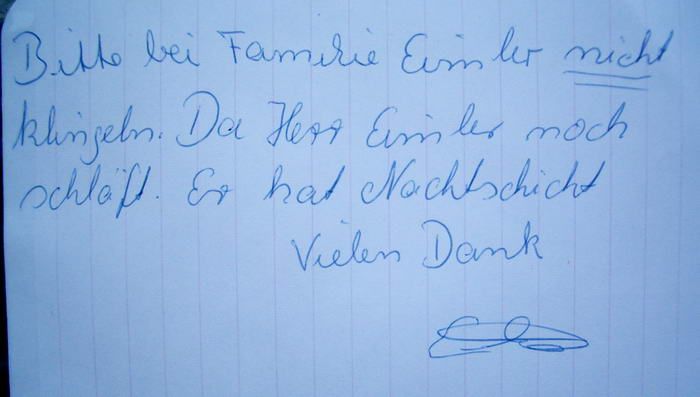 Bitte bei Familie Eimler nicht
klingeln. Da Herr Eimler noch
schläft. Er hat Nachtschicht
Vielen Dank